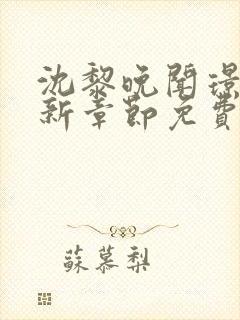 沈黎晚聞璟
新章節免費
蘇慕梨